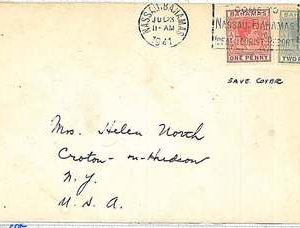 NASSAU·BAHAMAS
JUL 23
11-AM
1941
COME TO
NASSAU BAHAMAS
BAHAMAS
ONE PENNY
BAHAMAS
TWO
SAVE COVER
Mrs. Helen North
Croton-on-Hudson
N.Y.
U.S.A.